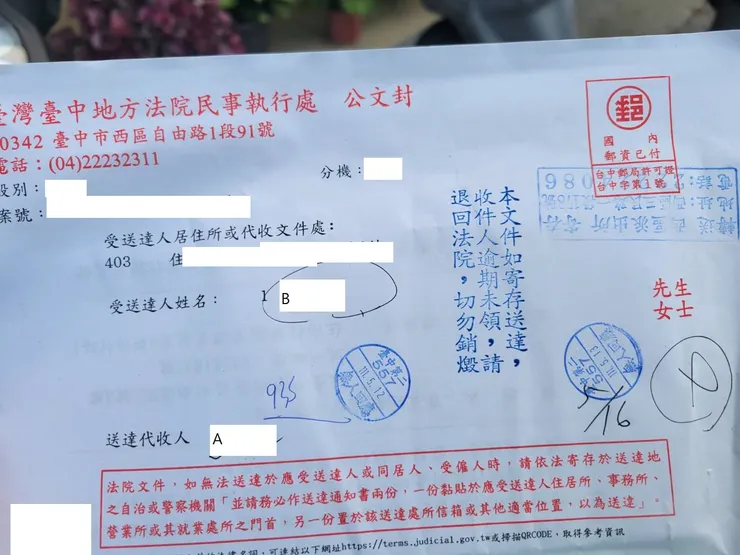 臺灣臺中地方法院民事執行處　公文封
0342 臺中市西區自由路1段91號
電話：(04)22232311
分機：
股別：
案號：
國內
郵資已付
台中郵局許可證
台中字第1號
受送達人居住所或代收文件處：
403 住
受送達人姓名： 1 B
本文件如寄存送達，
收件人逾期未領，請
退回法院，切勿銷燬
先生
女士
臺中第二
557
111.5.12
臺中第二
557
935
5/16
送達代收人 A
法院文件，如無法送達於應受送達人或同居人、受僱人時，請依法寄存於送達地
之自治或警察機關「並請務必作送達通知書兩份，一份黏貼於應受送達人住居所、事務所、
營業所或其就業處所之門首，另一份置於該送達處所信箱或其他適當位置，以為送達」。
可連結以下網址https://terms.judicial.gov.tw或掃描QRCODE，取得參考資訊